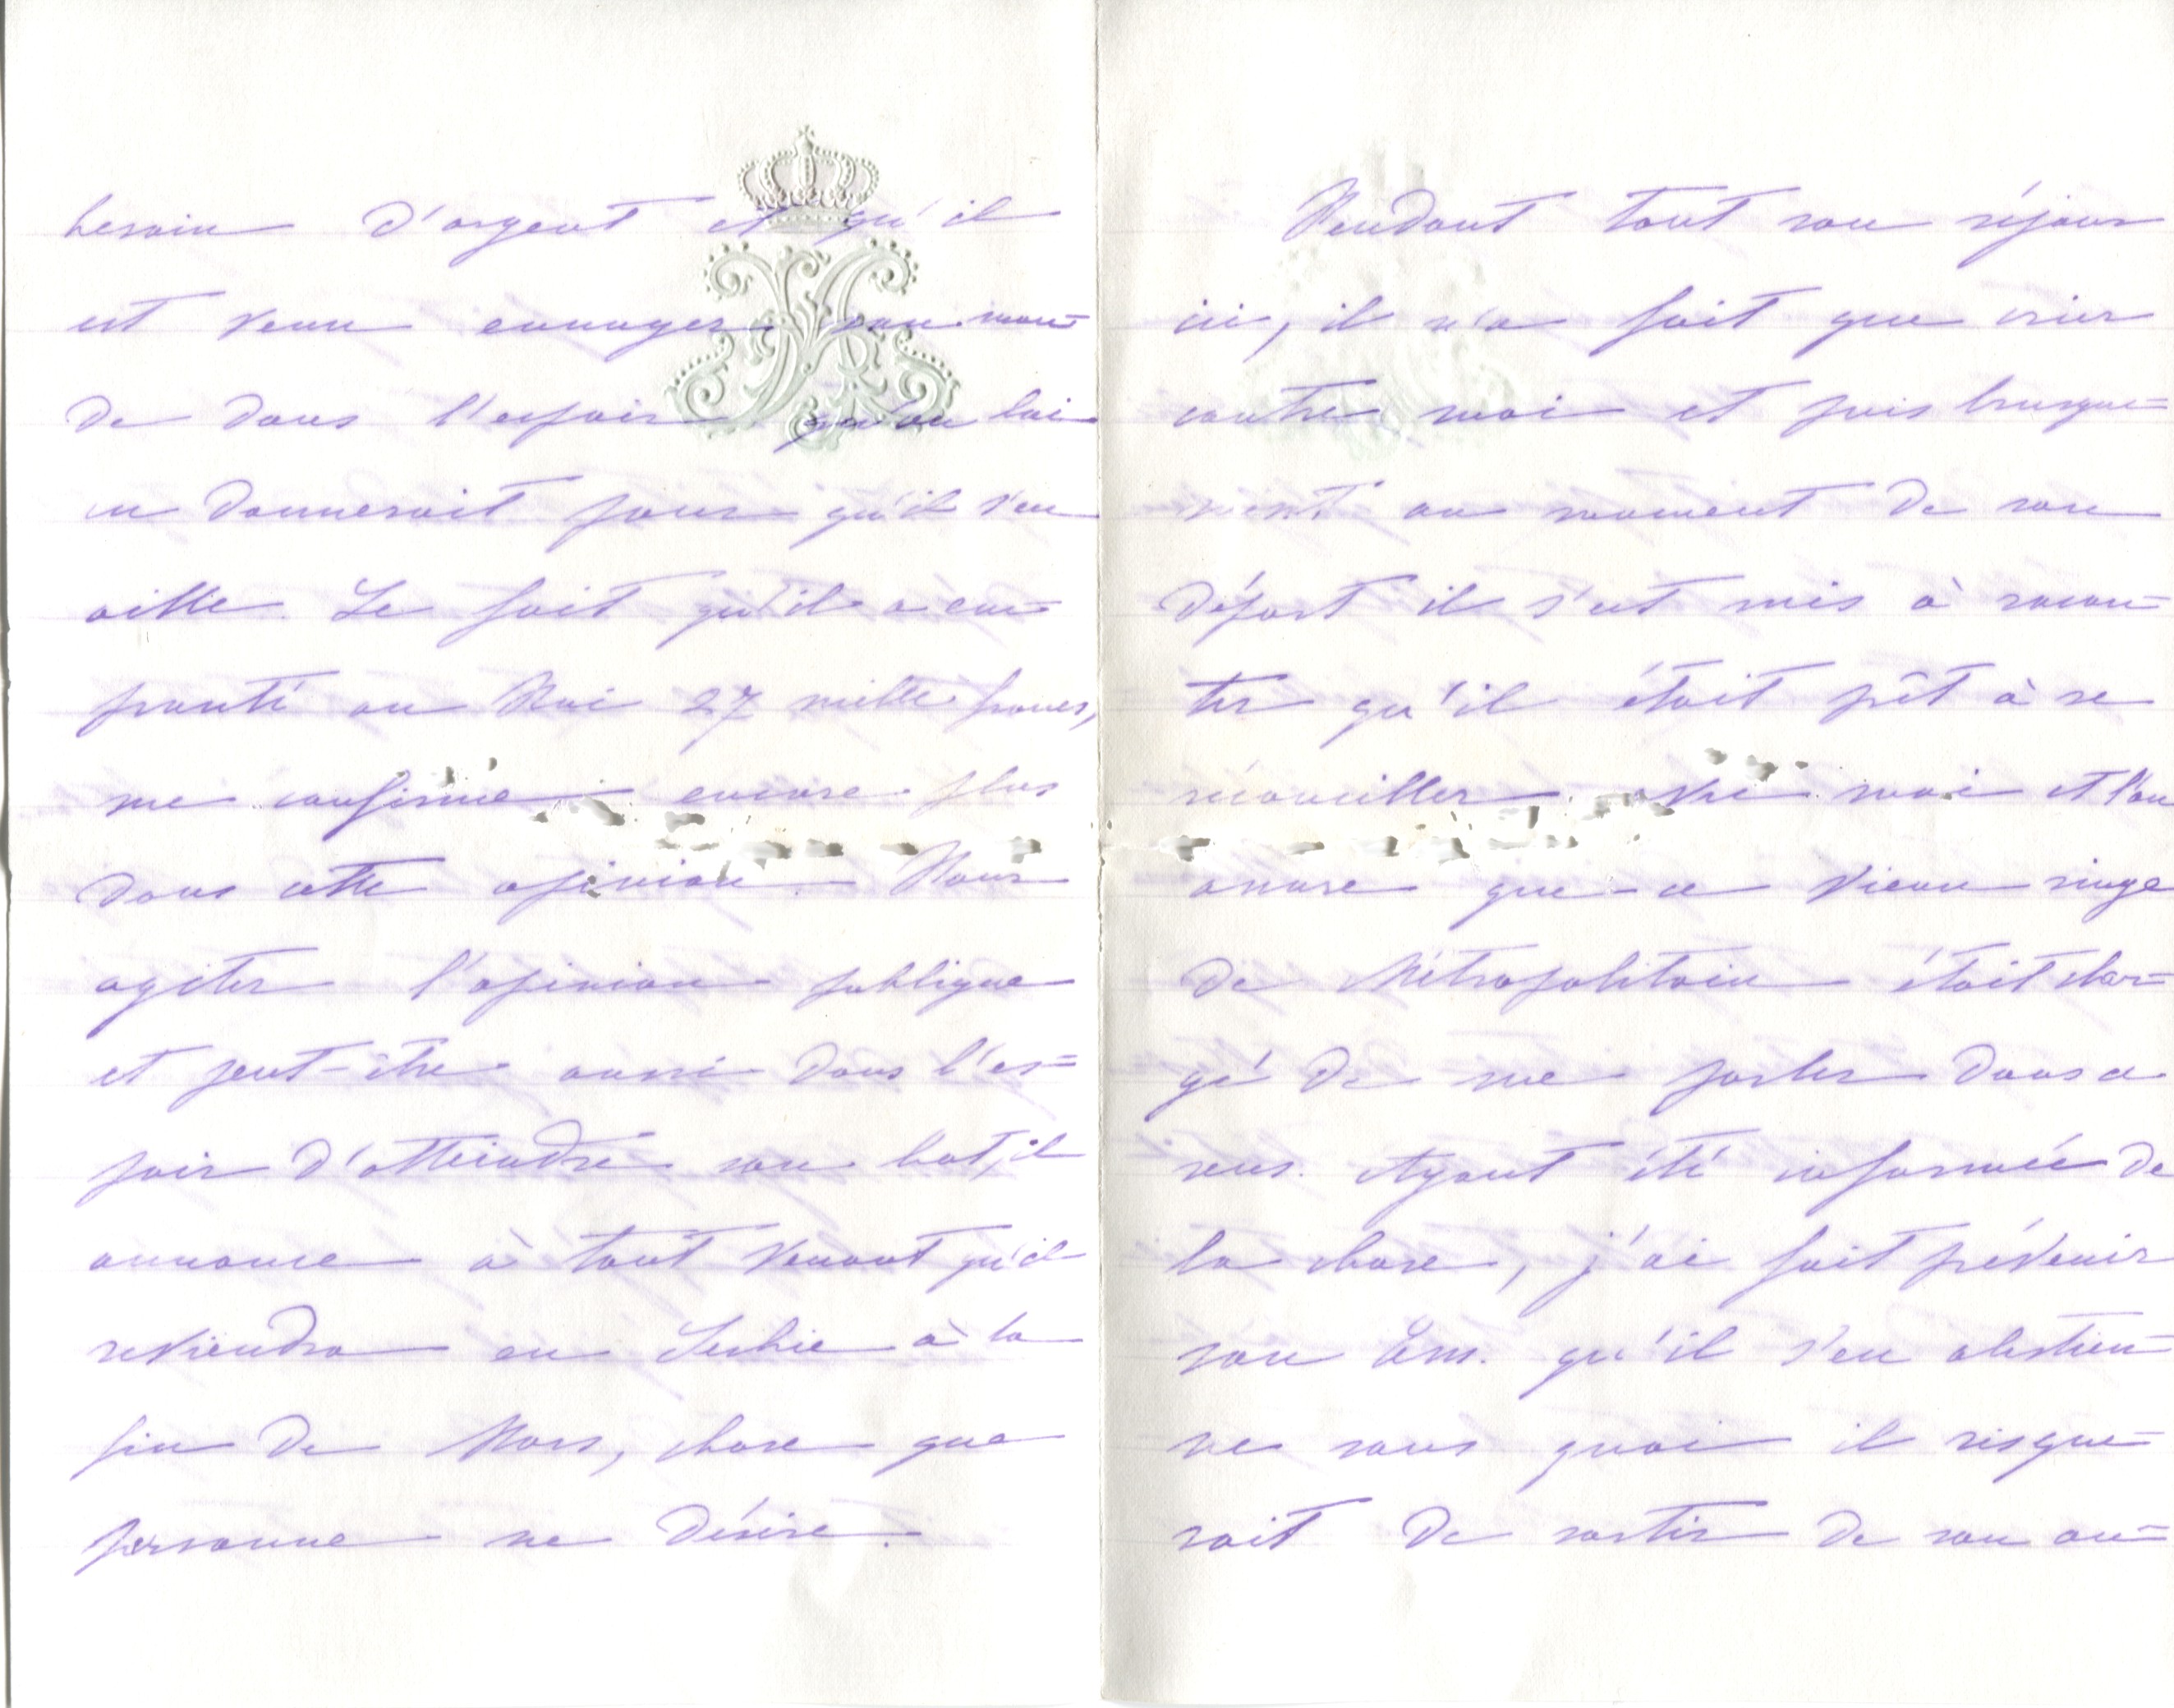 besoin d'argent et qu'il
est venu ennuyer son mon=
de dans l'espoir qu'on lui
en donnerait pour qu'il s'en
aille. Le fait qu'il a em=
prunté au Roi 27 mille francs,
me confirme encore plus
dans cette opinion. Pour
agiter l'opinion publique
et peut-être aussi dans l'es=
poir d'atteindre son but, il
annonce à tout venant qu'il
reviendra en Serbie à la
fin de Mars, chose que
personne ne désire.
Pendant tout son séjour
ici, il n'a fait que crier
contre moi et puis brusque=
ment au moment de son
départ il s'est mis à racon=
ter qu'il était prêt à se
réconcilier avec moi et l'on
assure que ce vieux singe
de Métropolitain était char=
gé de me parler dans ce
sens. Ayant été informée de
la chose, j'ai fait prévenir
son Em. qu'il s'en abstien=
ne sans quoi il risque=
rait de sortir de son au=